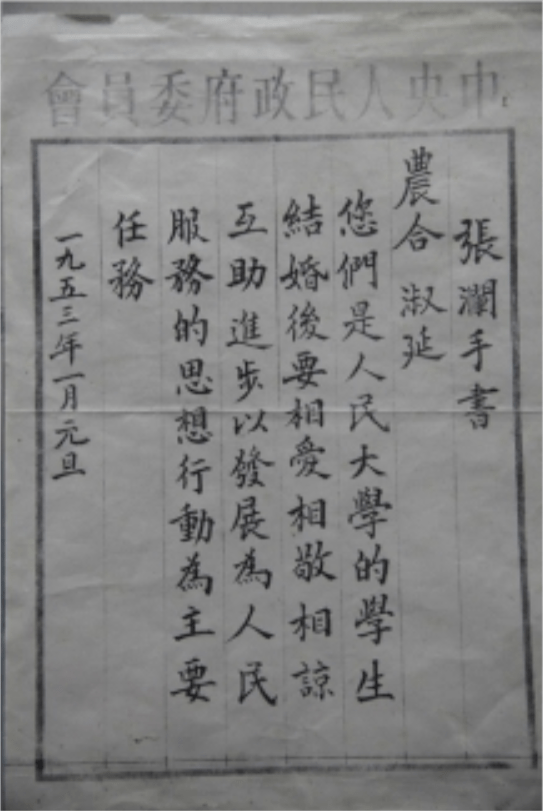 中央人民政府委員會
張瀾手書
農合 淑延
您們是人民大學的學生
結婚後要相愛相敬相諒
互助進步以發展為人民
服務的思想行動為主要
任務
一九五三年一月元旦